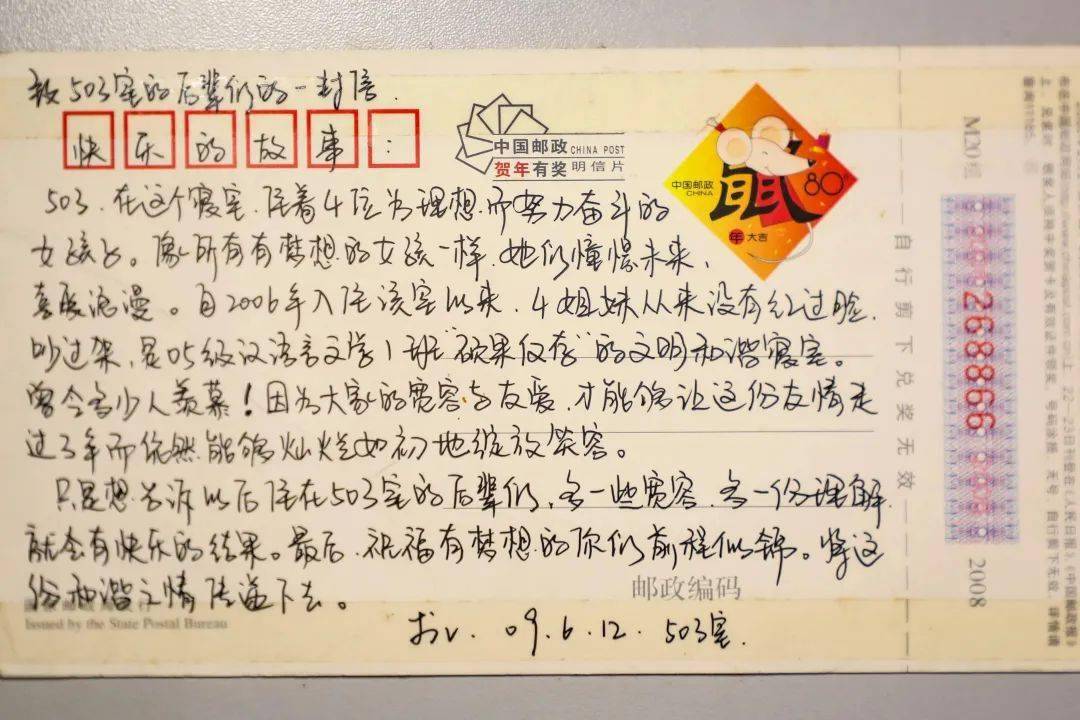 致503室的后辈们的一封信.
快乐的故事:
中国邮政 CHINA POST
贺年有奖 明信片
中国邮政
CHINA
鼠
80分
年 大吉
503.在这个寝室,住着4位为理想而努力奋斗的
女孩子。像所有有梦想的女孩一样,她们憧憬未来、
喜爱浪漫。自2006年入住该室以来,4姐妹从来没有红过脸,
吵过架,是05级汉语言文学1班硕果仅存的文明和谐寝室。
曾令多少人羡慕!因为大家的宽容与友爱,才能够让这份友情走
过3年而依然能够灿烂如初地绽放笑容。
只是想告诉以后住在503室的后辈们,多一些宽容,多一份理解,
就会有快乐的结果。最后,祝福有梦想的你们前程似锦。将这
份和谐之情传递下去。
邮政编码
Issued by the State Postal Bureau
09.6.12. 503室.
自行剪下兑奖无效
268866
2008